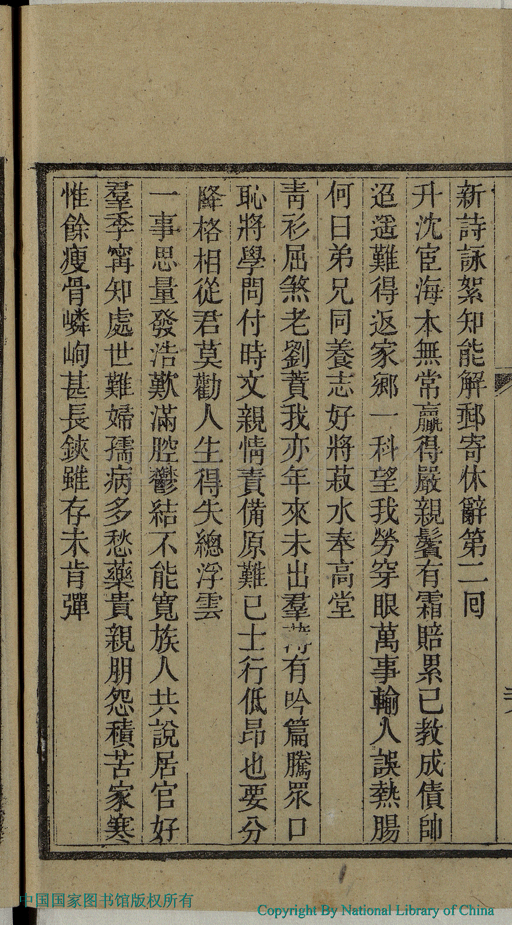 新詩詠絮知能解郵寄休辭第二回
升沈宦海本無常贏得嚴親鬢有霜賠累已教成債帥
迢遥難得返家鄉一科望我勞穿眼萬事輸人誤熱腸
何日弟兄同養志好將菽水奉高堂
青衫屈煞老劉蕡我亦年來未出羣薄有吟篇騰眾口
恥將學問付時文親情責備原難已士行低昂也要分
降格相從君莫勸人生得失總浮雲
一事思量發浩歎滿腔鬱結不能寬族人共說居官好
羣季甯知處世難婦孺病多愁藥貴親朋怨積苦家寒
惟餘瘦骨嶙峋甚長鋏雖存未肯彈
中国国家图书馆版权所有
Copyright By National Library of China